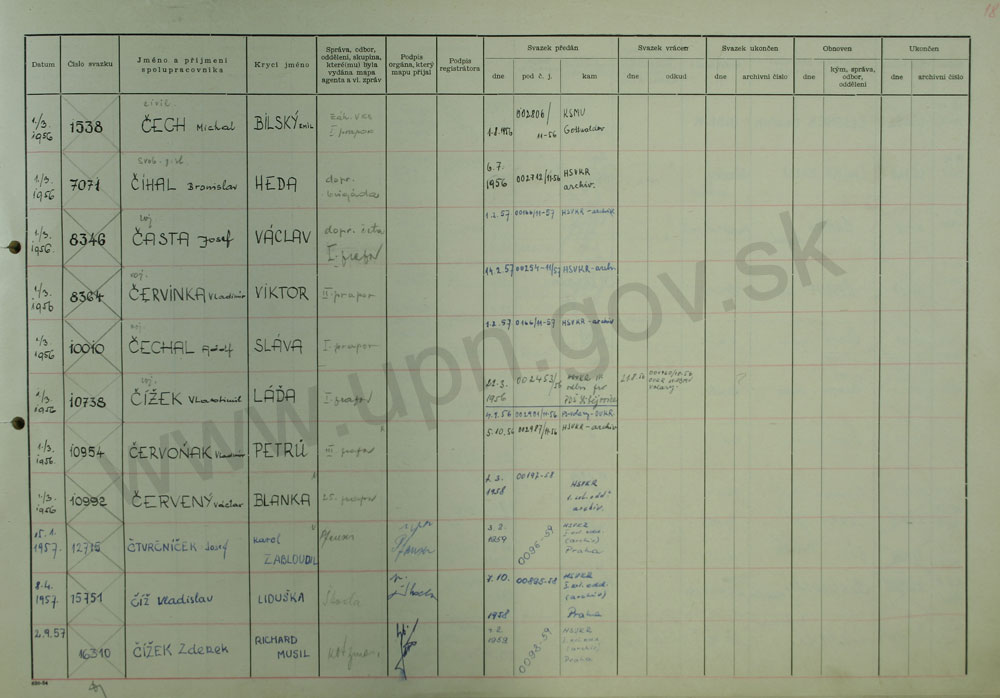 18
Datum
Číslo svazku
Jméno a příjmení spolupracovníka
Krycí jméno
Správa, odbor, oddělení, skupina, které(mu) byla vydána mapa agenta a vl. zpráv
Podpis orgána, který mapu přijal
Podpis registrátora
Svazek předán
dne
pod č. j.
kam
Svazek vrácen
dne
odkud
Svazek ukončen
dne
archivní číslo
Obnoven
dne
kým, správa, odbor, oddělení
Ukončen
dne
archivní číslo
civil.
1/3. 1956 1538 ČECH Michal BÍLSKÝ Emil I. prapor 1.8.1956 002806/11-56 KSMV Gottwaldov
1/3. 1956 7071 ČÍHAL Bronislav HEDA dopr. 6.7. 1956 002712/11-56 HSVKR archiv.
voj.
1/3. 1956. 8346 ČASTA Josef VÁCLAV dopr. četa 1.2.57 00166/11-57 HSVKR-archiv
voj.
1/3. 1956 8364 ČERVINKA Vladimír VIKTOR II. prapor 14.2.57 00254-11/57 HSVKR-archiv.
voj.
1/3. 1956 10010 ČECHAL Adolf SLÁVA I. prapor 1.2.57 00166/11-57 HSVKR-archiv
voj.
1/3. 1956 10738 ČÍŽEK Vlastimil LÁĎA 22.3. 1956 002453/56 21.8.56
4.9.56 002921/11-56
1/3. 1956. 10954 ČERVOŇAK Vladimír PETRŮ 5.10.56 002987/11-56 HSVKR-archiv
1/3. 1956 10992 ČERVENÝ Václav BLANKA 2.3. 1958 00147-58 HSVKR archiv.
15.1. 1957. 12715 ČTVRČNÍČEK Josef Karol ZABLOUDIL 3.2. 1959 0096-59 HSVKR (archiv) Praha
8.4. 1957. 15751 ČÍŽ Vladislav LIDUŠKA Škoda Škoda 7.10. 1958 00895-58 HSVKR (archiv) Praha
2.9.57 16310 ČÍŽEK Zdenek RICHARD MUSIL 3.2. 1959 0093-59 HSVKR (archiv) Praha
www.upn.gov.sk